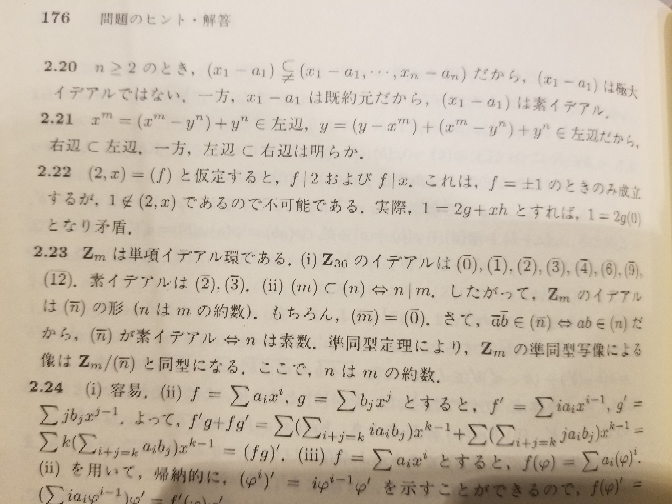 176 問題のヒント・解答
2.20 n ≥ 2 のとき, (x₁ − a₁) ⊊ (x₁ − a₁, ⋯, xₙ − aₙ) だから, (x₁ − a₁) は極大
イデアルではない. 一方, x₁ − a₁ は既約元だから, (x₁ − a₁) は素イデアル.
2.21 xᵐ = (xᵐ − yⁿ) + yⁿ ∈ 左辺, y = (y − xᵐ) + (xᵐ − yⁿ) + yⁿ ∈ 左辺だから,
右辺 ⊂ 左辺. 一方, 左辺 ⊂ 右辺は明らか.
2.22 (2, x) = (f) と仮定すると, f | 2 および f | x. これは, f = ±1 のときのみ成立
するが, 1 ∉ (2, x) であるので不可能である. 実際, 1 = 2g + xh とすれば, 1 = 2g(0)
となり矛盾.
2.23 Zₘ は単項イデアル環である. (i) Z₃₆ のイデアルは (0̅), (1̅), (2̅), (3̅), (4̅), (6̅), (9̅),
(12). 素イデアルは (2̅), (3̅). (ii) (m) ⊂ (n) ⇔ n | m. したがって, Zₘ のイデアル
は (n̅) の形 (n は m の約数). もちろん, (m̅) = (0̅). さて, a̅b̅ ∈ (n̅) ⇔ ab ∈ (n) だ
から, (n̅) が素イデアル ⇔ n は素数. 準同型定理により, Zₘ の準同型写像による
像は Zₘ/(n̅) と同型になる. ここで, n は m の約数.
2.24 (i) 容易. (ii) f = ∑ aᵢxⁱ, g = ∑ bⱼxʲ とすると, f′ = ∑ iaᵢxⁱ⁻¹, g′ =
∑ jbⱼxʲ⁻¹. よって, f′g + fg′ = ∑(∑ᵢ₊ⱼ₌ₖ iaᵢbⱼ)xᵏ⁻¹ + ∑(∑ᵢ₊ⱼ₌ₖ jaᵢbⱼ)xᵏ⁻¹ =
∑ k(∑ᵢ₊ⱼ₌ₖ aᵢbⱼ)xᵏ⁻¹ = (fg)′. (iii) f = ∑ aᵢxⁱ とすると, f(φ) = ∑ aᵢ(φ)ⁱ.
(ii) を用いて, 帰納的に, (φⁱ)′ = iφⁱ⁻¹φ′ を示すことができるので, f(φ)′ =
(∑ iaᵢφⁱ⁻¹)φ′ =